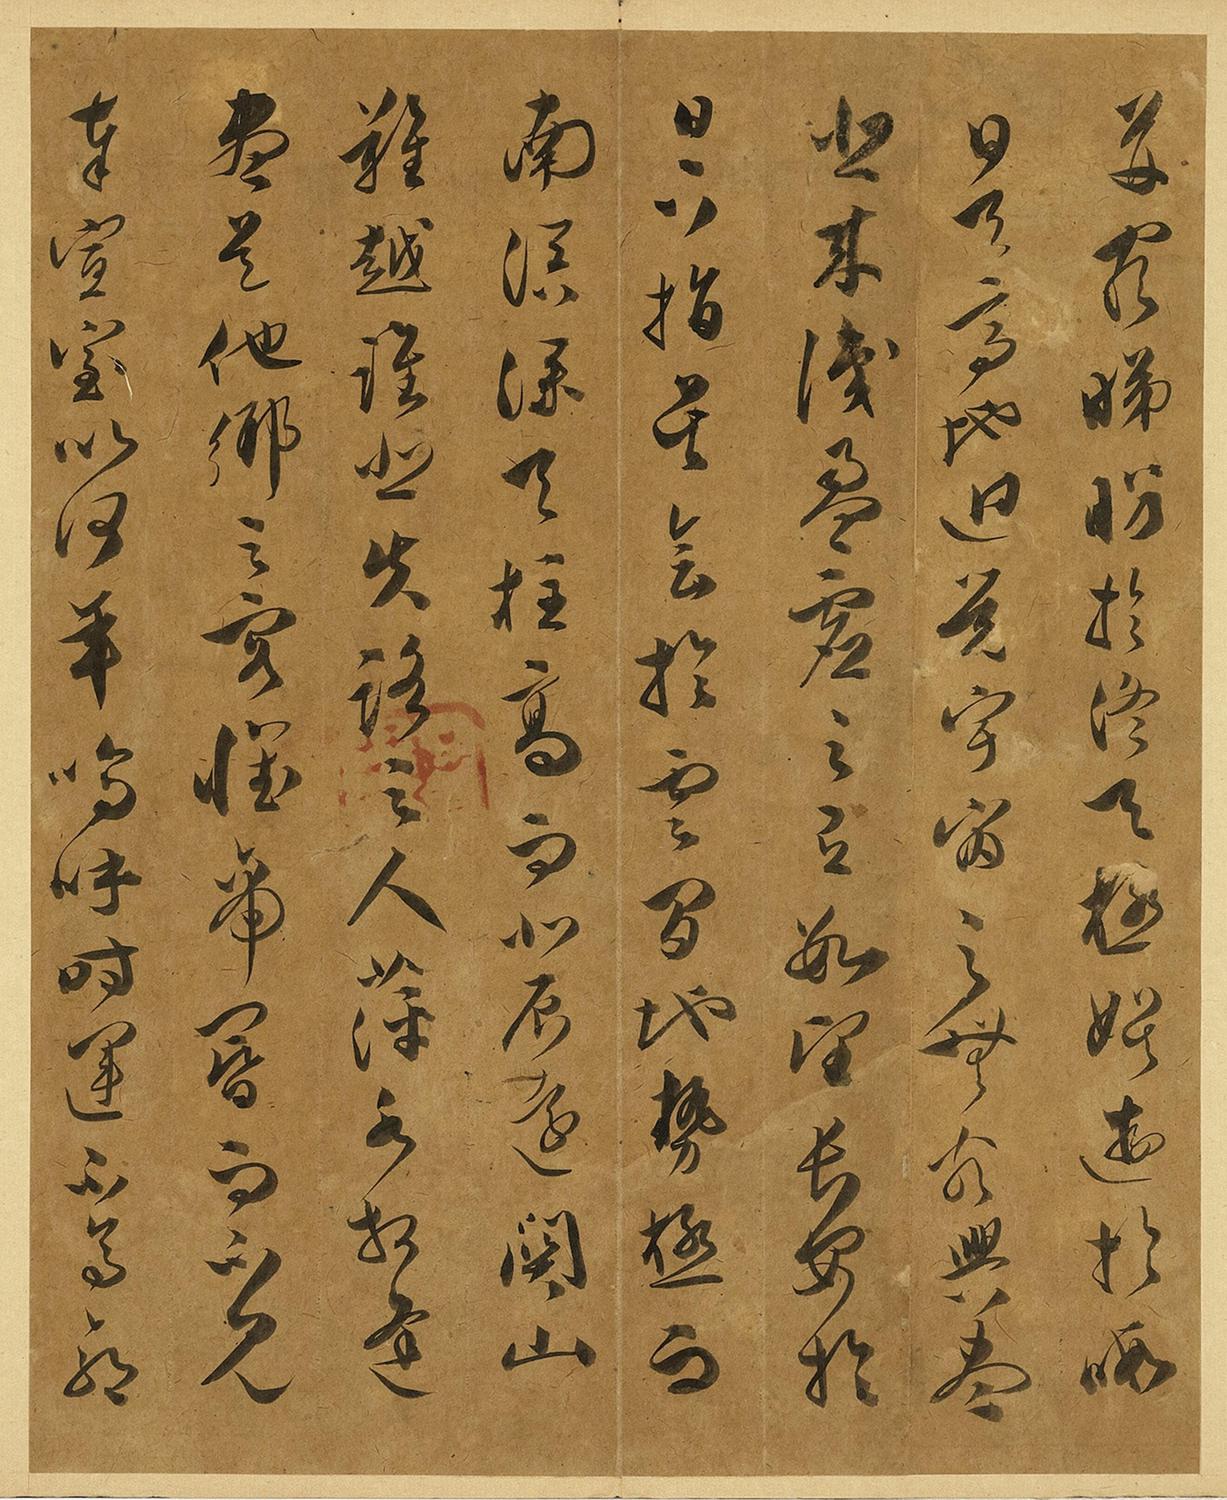 窮睇眄於天極娛遊於暇
日天高地迥覺宇宙之無窮興盡
悲來識盈虛之數望長安於
日下指吳會於雲間地勢極而
南溟深天柱高而北辰遠關山
難越誰悲失路之人萍水相逢
盡是他鄉之客懷帝閽而不見
奉宣室以何年嗚呼時運不齊命